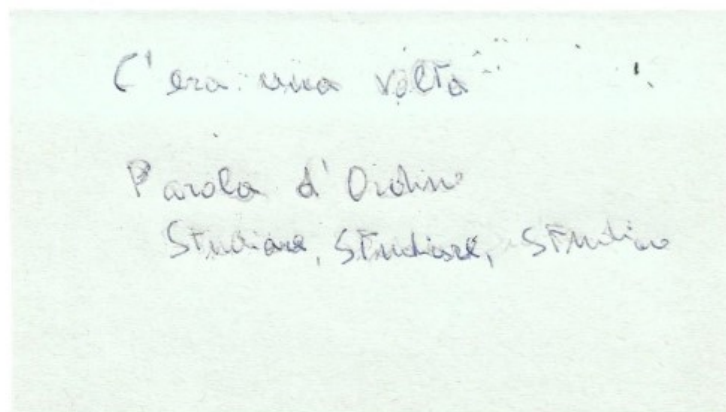 C'era una volta...
Parola d'Ordine
Studiare, Studiare, Studiare